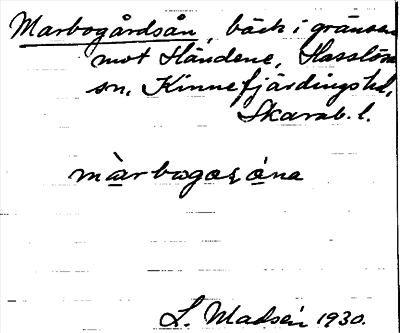 Marbogårdsån, bäck i gränsen
mot Händene, Hasslösa
sn, Kinnefjärdings hd,
Skarab. l.
màrbogas åna
L. Madsén 1930.